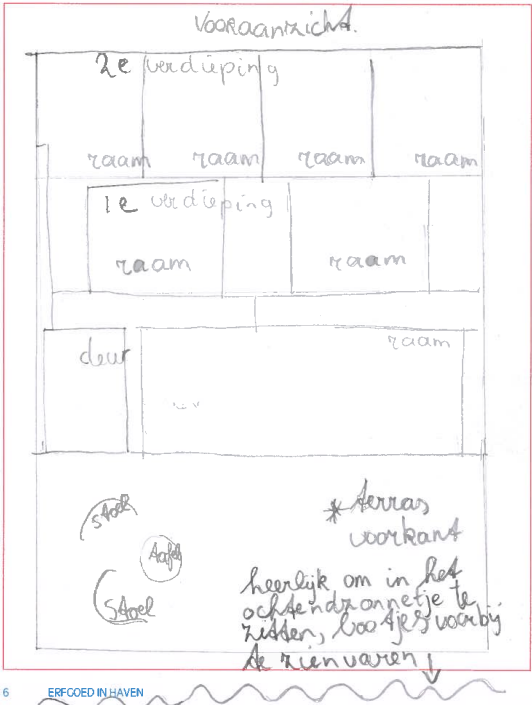 Vooraanzicht.
2e verdieping
raam raam raam raam
1e verdieping
raam raam
deur raam
stoel
Tafel
stoel
* terras
voorkant
heerlijk om in het
ochtendzonnetje te
zitten, bootjes voorbij
te zien varen ↓
6 ERFGOED IN HAVEN